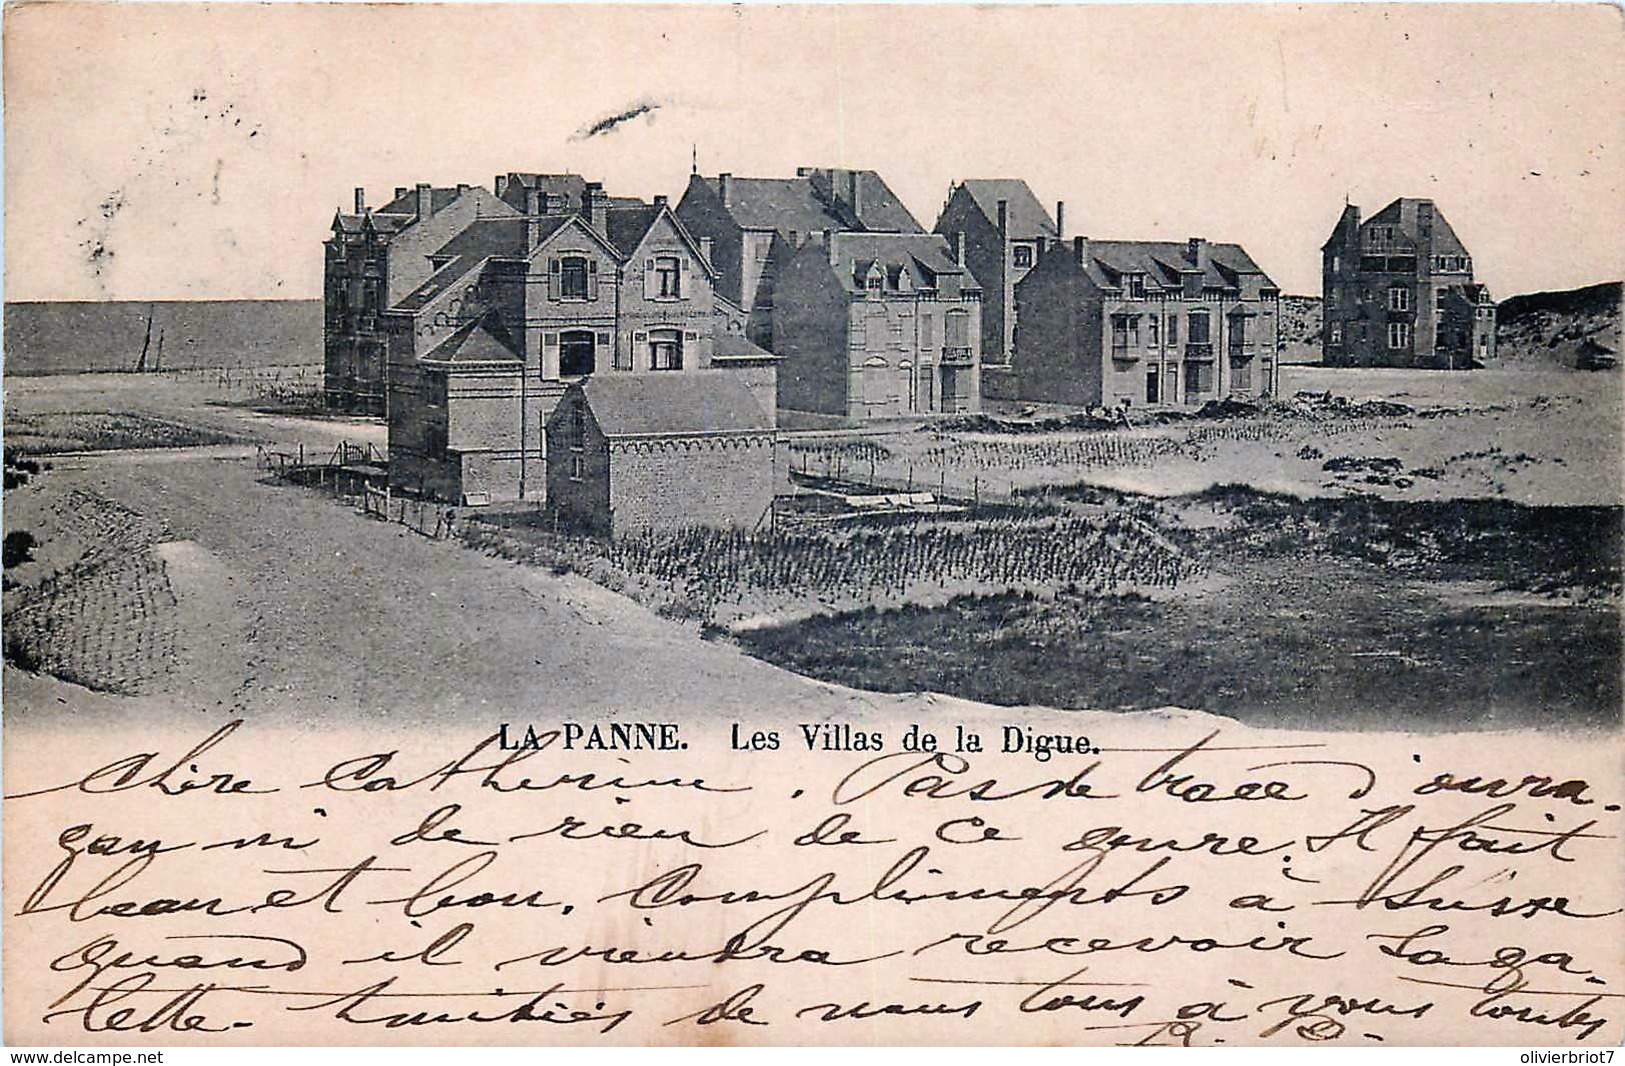 LA PANNE. Les Villas de la Digue.
Chère Catherine. Pas de trace d'oura-
gan ni de rien de ce genre. Il fait
beau et bon. Compliments à Suisse
quand il viendra recevoir sa ga-
lette. Amitiés de nous tous à vous toutes
delcampe.net
olivierbriot7